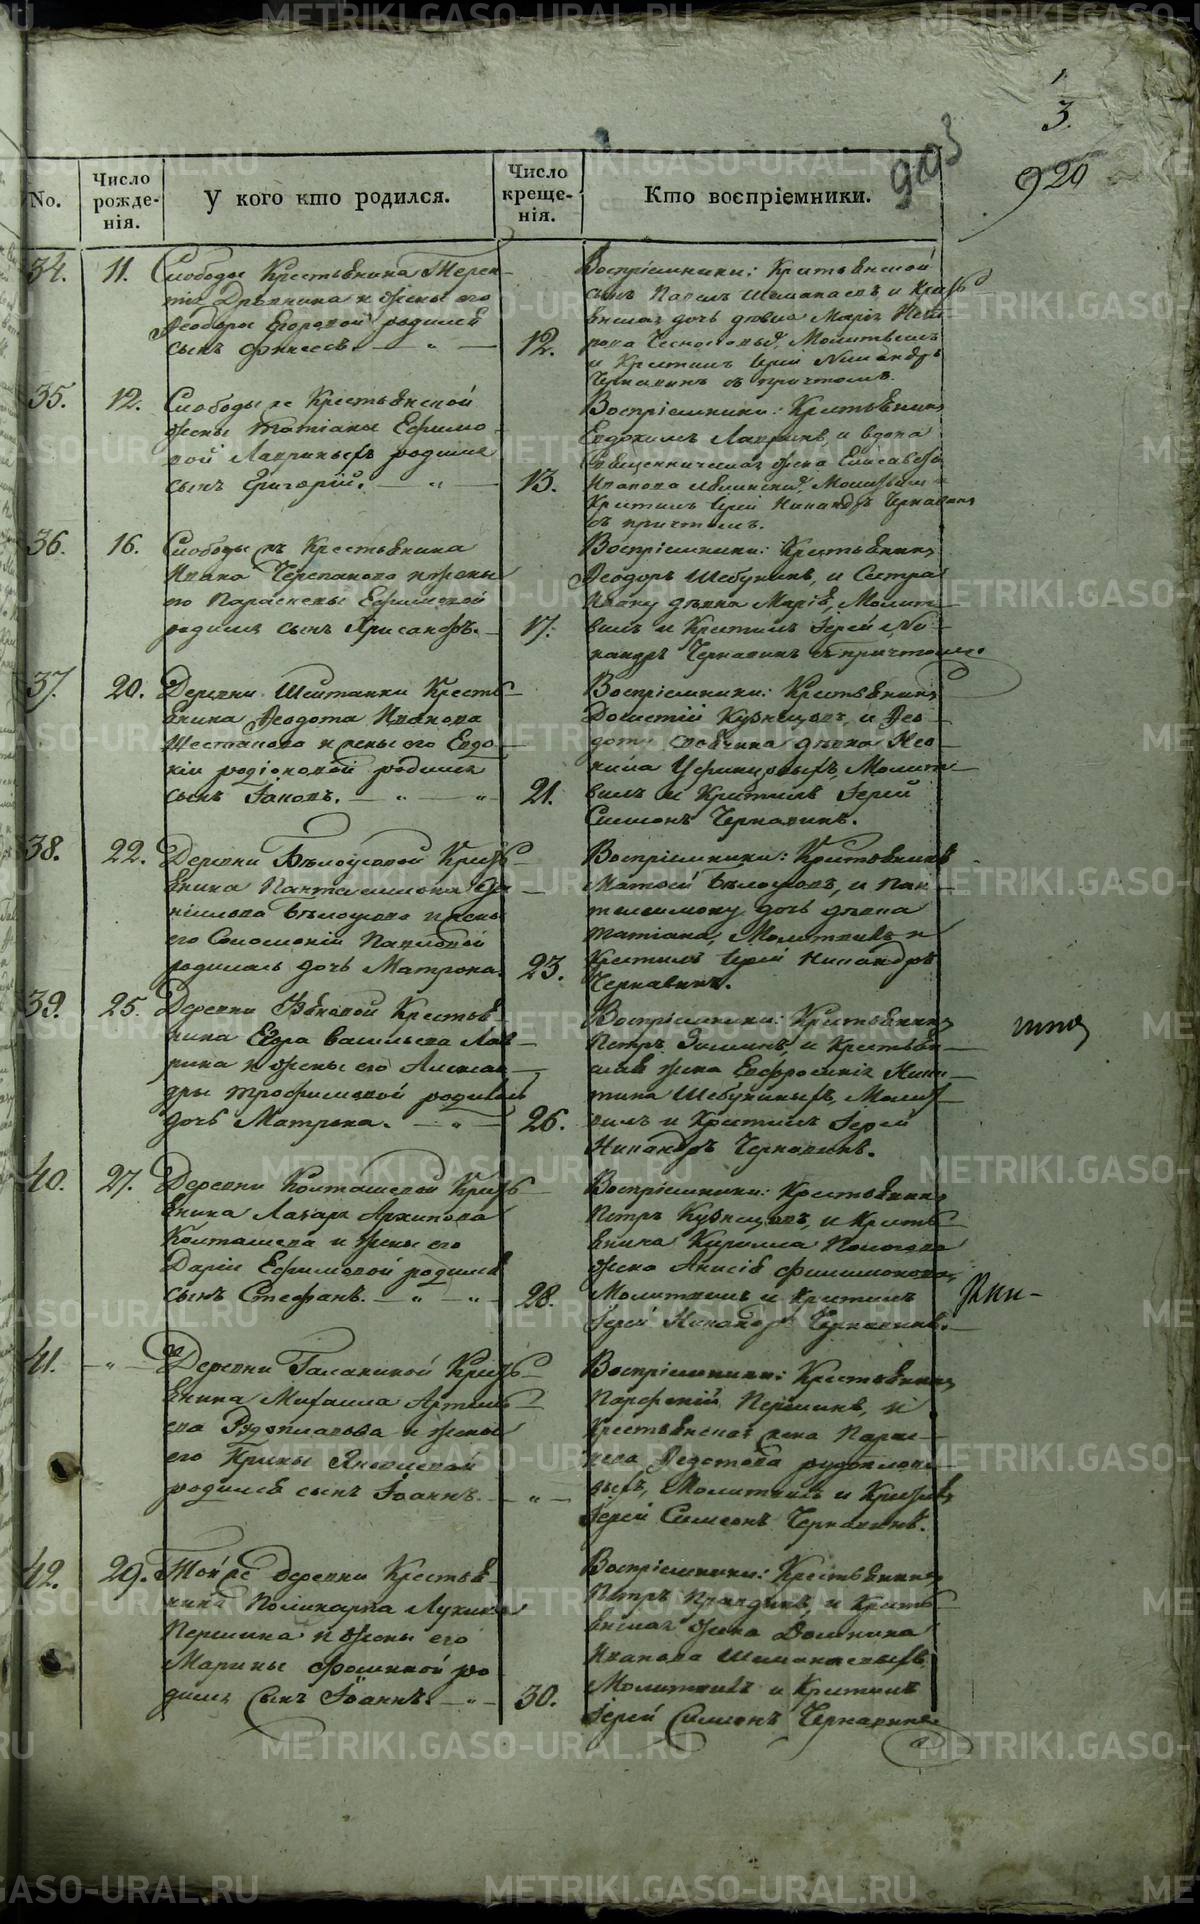 3.
903
920
No.
Число рожденія.
У кого кто родился.
Число крещенія.
Кто воспріемники.
34. 11. Слободы Крестьянина Терен-
тія Дрянина и жены его
Ѳеодоры Егоровой родился
сынъ 12.
Воспріемники: Крестьянской
сынъ Павелъ Шеманаевъ, и Кресть
янская дочь дѣвка Марія
Молитвилъ
и Крестилъ Іерей Никандръ
Чернавинъ съ причтомъ.
35. 12. Слободы же Крестьянской
жены Татіаны Ефимо-
вой Лавриныхъ родился
сынъ Григорій. 13.
Воспріемники: Крестьянинъ
Евдокимъ Лавринъ, и вдова
Священническая жена Елисавета
Иванова Молитвилъ и
Крестилъ Іерей Никандръ Чернавинъ
съ причтомъ.
36. 16. Слободы въ Крестьянина
Ивана Черепанова и жены
его Параскевы Ефимовой
родился сынъ Хрисанфъ. 17.
Воспріемники: Крестьянинъ
Ѳеодоръ Шебунинъ, и Сестра
Ивану дѣвка Марія, Молит-
вилъ и Крестилъ Іерей Ни-
кандръ Чернавинъ съ причтомъ.
37. 20. Деревни Шайтанки Кресть-
янина Ѳеодота Иванова
Шестакова и жены его Евдо-
кіи родіоновой родился
сынъ Іаковъ. 21.
Воспріемники: Крестьянинъ
Дометій Кузнецовъ, и Ѳео-
дота дѣвка Нео-
нила Молит-
вилъ и Крестилъ Іерей
Симеонъ Чернавинъ.
38. 22. Деревни Бѣлоусовой Кресть-
янина Пантелеимона Да-
ніилова Бѣлоусова и жены
его Соломоніи Павловой
родилась дочь Матрона. 23.
Воспріемники: Крестьянинъ
Матвей Бѣлоусовъ, и Пан-
телеимону дочь дѣвка
Татіана, Молитвилъ и
Крестилъ Іерей Никандръ
Чернавинъ.
39. 25. Деревни Крестья-
нина Егора Васильева Лав-
рина и жены его Алексан-
дры Трофимовой родилась
дочь Матрона. 26.
Воспріемники: Крестьянинъ
Петръ Зиминъ, и Крестьян-
ская жена Евфросинія Ники-
тина Шебуниныхъ, Молит-
вилъ и Крестилъ Іерей
Никандръ Чернавинъ.
40. 27. Деревни Колташевой Кресть-
янина Лазаря Архипова
Колташева и жены его
Даріи Ефимовой родился
сынъ Стефанъ. 28.
Воспріемники: Крестьянинъ
Петръ Кузнецовъ, и Кресть-
янина Кирилла
жена Анисія Филимонова,
Молитвилъ и Крестилъ
Іерей Никандръ Чернавинъ.
41. Деревни Галаниной Кресть-
янина Михаила Артемь-
ева Рудоплавова и жены
его Ирины Яковлевой
родился сынъ Іоаннъ.
Воспріемники: Крестьянинъ
Парфеній Першинъ, и
Крестьянская жена Парас-
кева Ѳедотова рудоплаво-
выхъ, Молитвилъ и Крестилъ
Іерей Симеонъ Чернавинъ.
42. 29. Той же деревни Крестья-
нина Поликарпа Лукина
Першина и жены его
Марины Фоминой ро-
дился Сынъ Іоаннъ. 30.
Воспріемники: Крестьянинъ
Петръ и Кресть-
янская жена Домнина
Иванова Шеманаевыхъ
Молитвилъ и Крестилъ
Іерей Симеонъ Чернавинъ.
METRIKI.GASO-URAL.RU